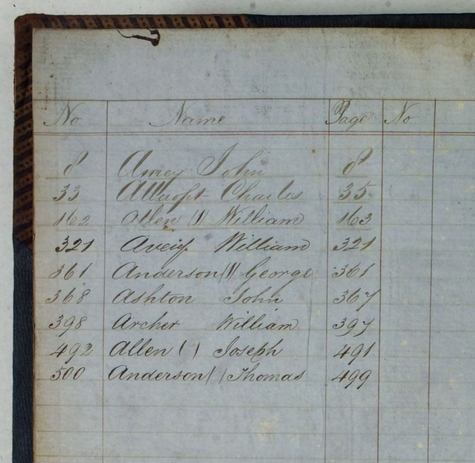 No Name Page No
8 Amey John 8
33 Allcopt Charles 35
162 Allen (1) William 163
321 William 321
361 Anderson (1) George 361
368 Ashton John 367
398 Archer William 397
492 Allen ( ) Joseph 491
500 Anderson ( ) Thomas 499